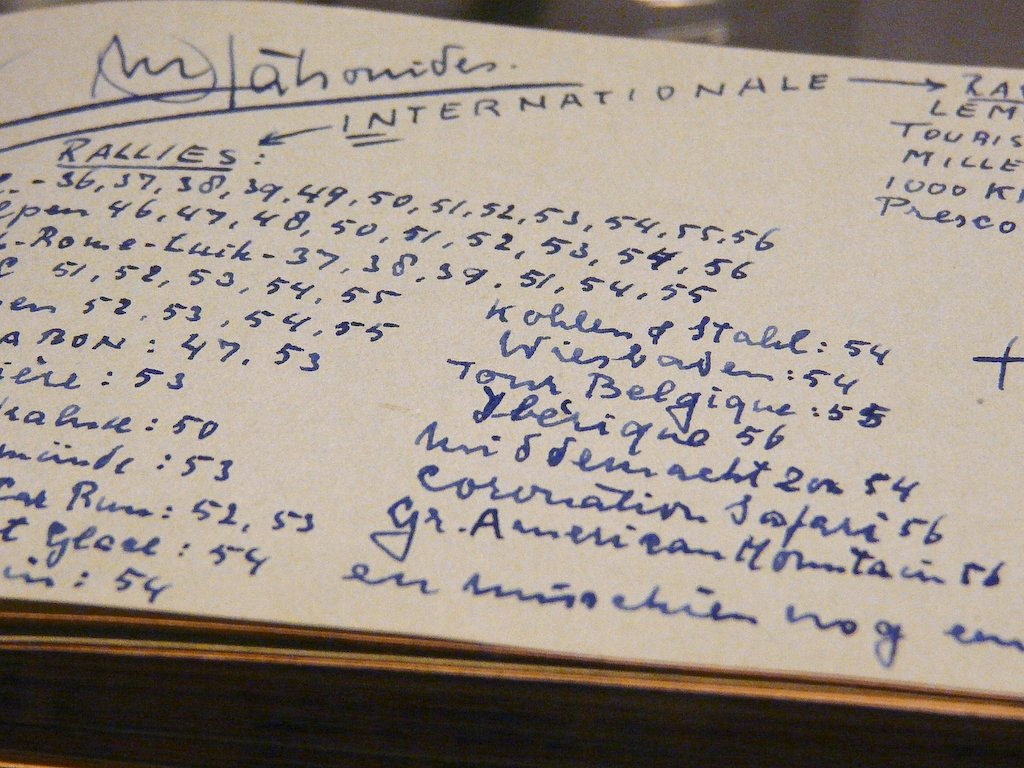 INTERNATIONALE → RA
LEM
TOURIS
MILLE
1000 K
Presco
RALLIES:
. - 36, 37, 38, 39, 49, 50, 51, 52, 53, 54, 55, 56
lpen 46, 47, 48, 50, 51, 52, 53, 54, 56
-Rome-Luik - 37, 38, 39, 51, 54, 55
C 51, 52, 53, 54, 55
en 52, 53, 54, 55
ARON: 47, 53
ière: 53
: 50
münde: 53
Car Run: 52, 53
t Glace: 54
in: 54
Kohlen & Stahl: 54
Wiesbaden: 54
Tour Belgique: 55
Ibérique 56
Middernachtzon 54
Coronation Safari 56
Gr. American Mountain 56
en misschien nog een